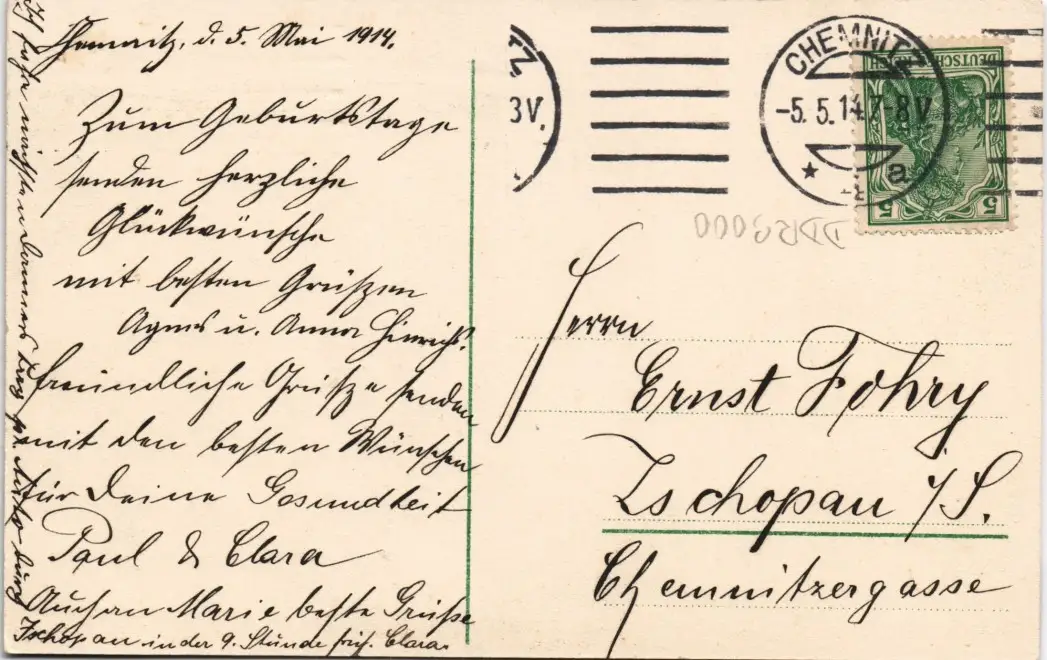 Chemnitz, d. 5. Mai 1914.
Zum Geburtstage
senden herzliche
Glückwünsche
mit besten Grüßen
Agnes u. Anna Hinrichs.
freundliche Grüße senden
mit den besten Wünschen
für Deine Gesundheit
Paul & Clara
Auch an Marie beste Grüße
Ich fahre nächsten Donnerstag per Auto durch
Zschopau in der 9. Stunde früh. Clara.
3V.
CHEMNITZ
-5.5.14.7-8V
★ a
DEUTSCHES REICH
5 5
DDR9000
Herrn
Ernst Fohry
Zschopau i/S.
Chemnitzergasse